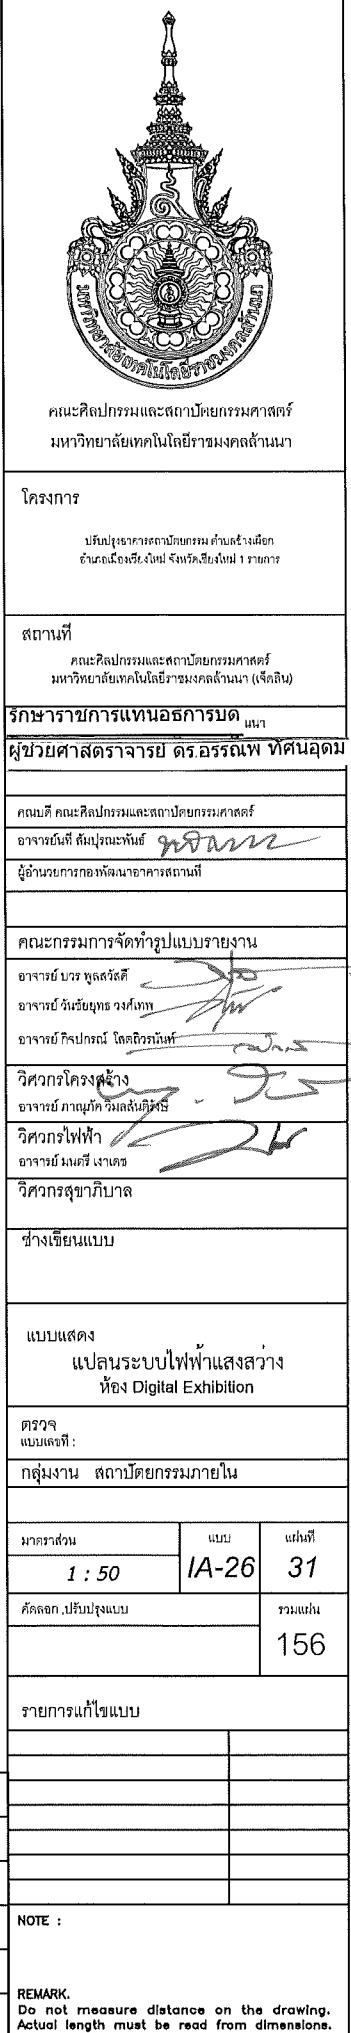 มหาวิทยาลัยเทคโนโลยีราชมงคลล้านนา
คณะศิลปกรรมและสถาปัตยกรรมศาสตร์
มหาวิทยาลัยเทคโนโลยีราชมงคลล้านนา
โครงการ
ปรับปรุงอาคารสถาปัตยกรรม ตำบลช้างเผือก
อำเภอเมืองเชียงใหม่ จังหวัดเชียงใหม่ 1 รายการ
สถานที่
คณะศิลปกรรมและสถาปัตยกรรมศาสตร์
มหาวิทยาลัยเทคโนโลยีราชมงคลล้านนา (เจ็ดลิน)
รักษาราชการแทนอธิการบดี
นนา
ผู้ช่วยศาสตราจารย์ ดร.อรรณพ ทัศนอุดม
คณบดี คณะศิลปกรรมและสถาปัตยกรรมศาสตร์
อาจารย์นที ลัมปุรณะพันธ์
ผู้อำนวยการกองพัฒนาอาคารสถานที่
คณะกรรมการจัดทำรูปแบบรายงาน
อาจารย์ บวร พูลสวัสดิ์
อาจารย์ วันชัยยุทธ วงศ์เทพ
อาจารย์ กิจปกรณ์ โลตถิวรนันท์
วิศวกรโครงสร้าง
อาจารย์ ภาณุภัค
วิศวกรไฟฟ้า
อาจารย์ มนตรี เงาเดช
วิศวกรสุขาภิบาล
ช่างเขียนแบบ
แบบแสดง
แปลนระบบไฟฟ้าแสงสว่าง
ห้อง Digital Exhibition
ตรวจ
แบบเลขที่ :
กลุ่มงาน สถาปัตยกรรมภายใน
มาตราส่วน แบบ แผ่นที่
1 : 50 IA-26 31
คัดลอก ,ปรับปรุงแบบ รวมแผ่น
156
รายการแก้ไขแบบ
NOTE :
REMARK.
Do not measure distance on the drawing.
Actual length must be read from dimensions.